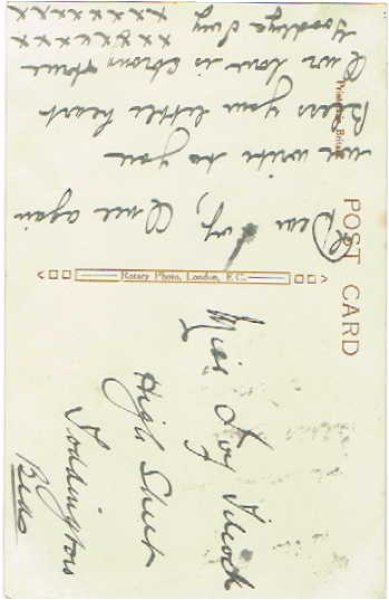 POST CARD
Printed in Britain
Rotary Photo, London, E.C.
Dear Ivy, Once again
we write to you
Bless your little heart
Our love is strong true
Goodbye Ivy x x x x x x x
x x x x x x x x
Miss Ivy
High Street
Toddington
Beds